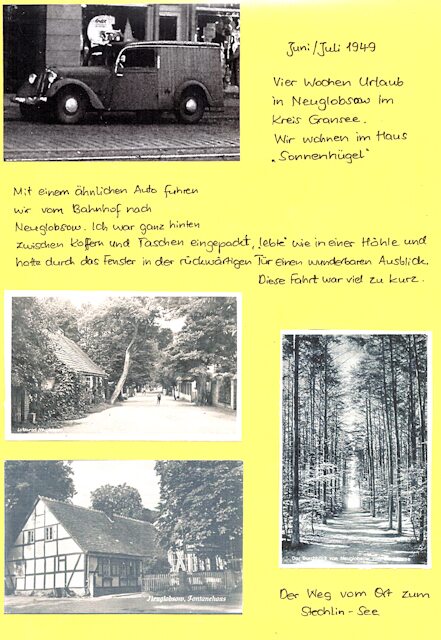 Juni/Juli 1949
Vier Wochen Urlaub
in Neuglobsow im
Kreis Gransee.
Wir wohnen im Haus
„Sonnenhügel"
Mit einem ähnlichen Auto fuhren
wir vom Bahnhof nach
Neuglobsow. Ich war ganz hinten
zwischen Koffern und Taschen eingepackt, lebte wie in einer Höhle und
hatte durch das Fenster in der rückwärtigen Tür einen wunderbaren Ausblick.
Diese Fahrt war viel zu kurz.
Neuglobsow, Fontanehaus
Der Weg vom Ort zum
Stechlin-See